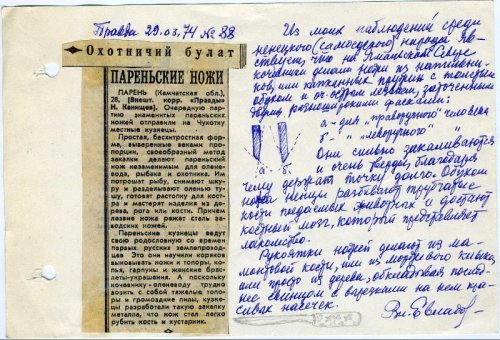 Правда 29.03.74 № 88
Охотничий булат
ПАРЕНЬСКИЕ НОЖИ
ПАРЕНЬ (Камчатская обл.),
28. (Внешт. корр. «Правды»
Н. Канищев). Очередную партию знаменитых пареньских
ножей отправили на Чукотку
местные кузнецы.
Простая, бесхитростная форма, выверенные веками пропорции, своеобразный метод
закалки делают пареньский
нож незаменимым для оленевода, рыбака и охотника. Им
потрошат рыбу, снимают шкуру и разделывают оленью тушу, готовят растопку для костра и мастерят изделия из дерева, рога или кости. Причем
лезвие ножа режет сталь заводских ножей.
Пареньские кузнецы ведут
свою родословную со времен
первых русских землепроходцев. Это они научили коряков
выковывать ножи и топоры, копья, гарпуны и женские браслеты-украшения. А поскольку
кочевнику-оленеводу трудно
возить с собой тяжелые топоры и громоздкие пилы, кузнецы разработали такую закалку
металла, что нож стал легко
рубить кость и кустарник.
Из моих наблюдений среди
ненецкого (самоедского) народа явствует, что на Ямальском Севере
кочевники делают ножи из напильников, или каких иных прутьев с толстым
обухом и острым лезвием, заточенным
двумя разношироκими фасками:
а - для "праворукого" человека
б - " - "леворукого" "
Они сильно закаливаются
и очень тверды, благодаря
чему держат точку долго. Обухом
ножа ненцы разбивают трубчатые
кости поедаемых животных и достают
костный мозг, который представляет
лакомство.
Рукоятки ножей делают из мамонтовой кости, или из моржового клыка,
или просто из дерева, обкладывая последнее свинцом с вырезанием на нем красивых насечек.
а.
б.
Вл. Евладов